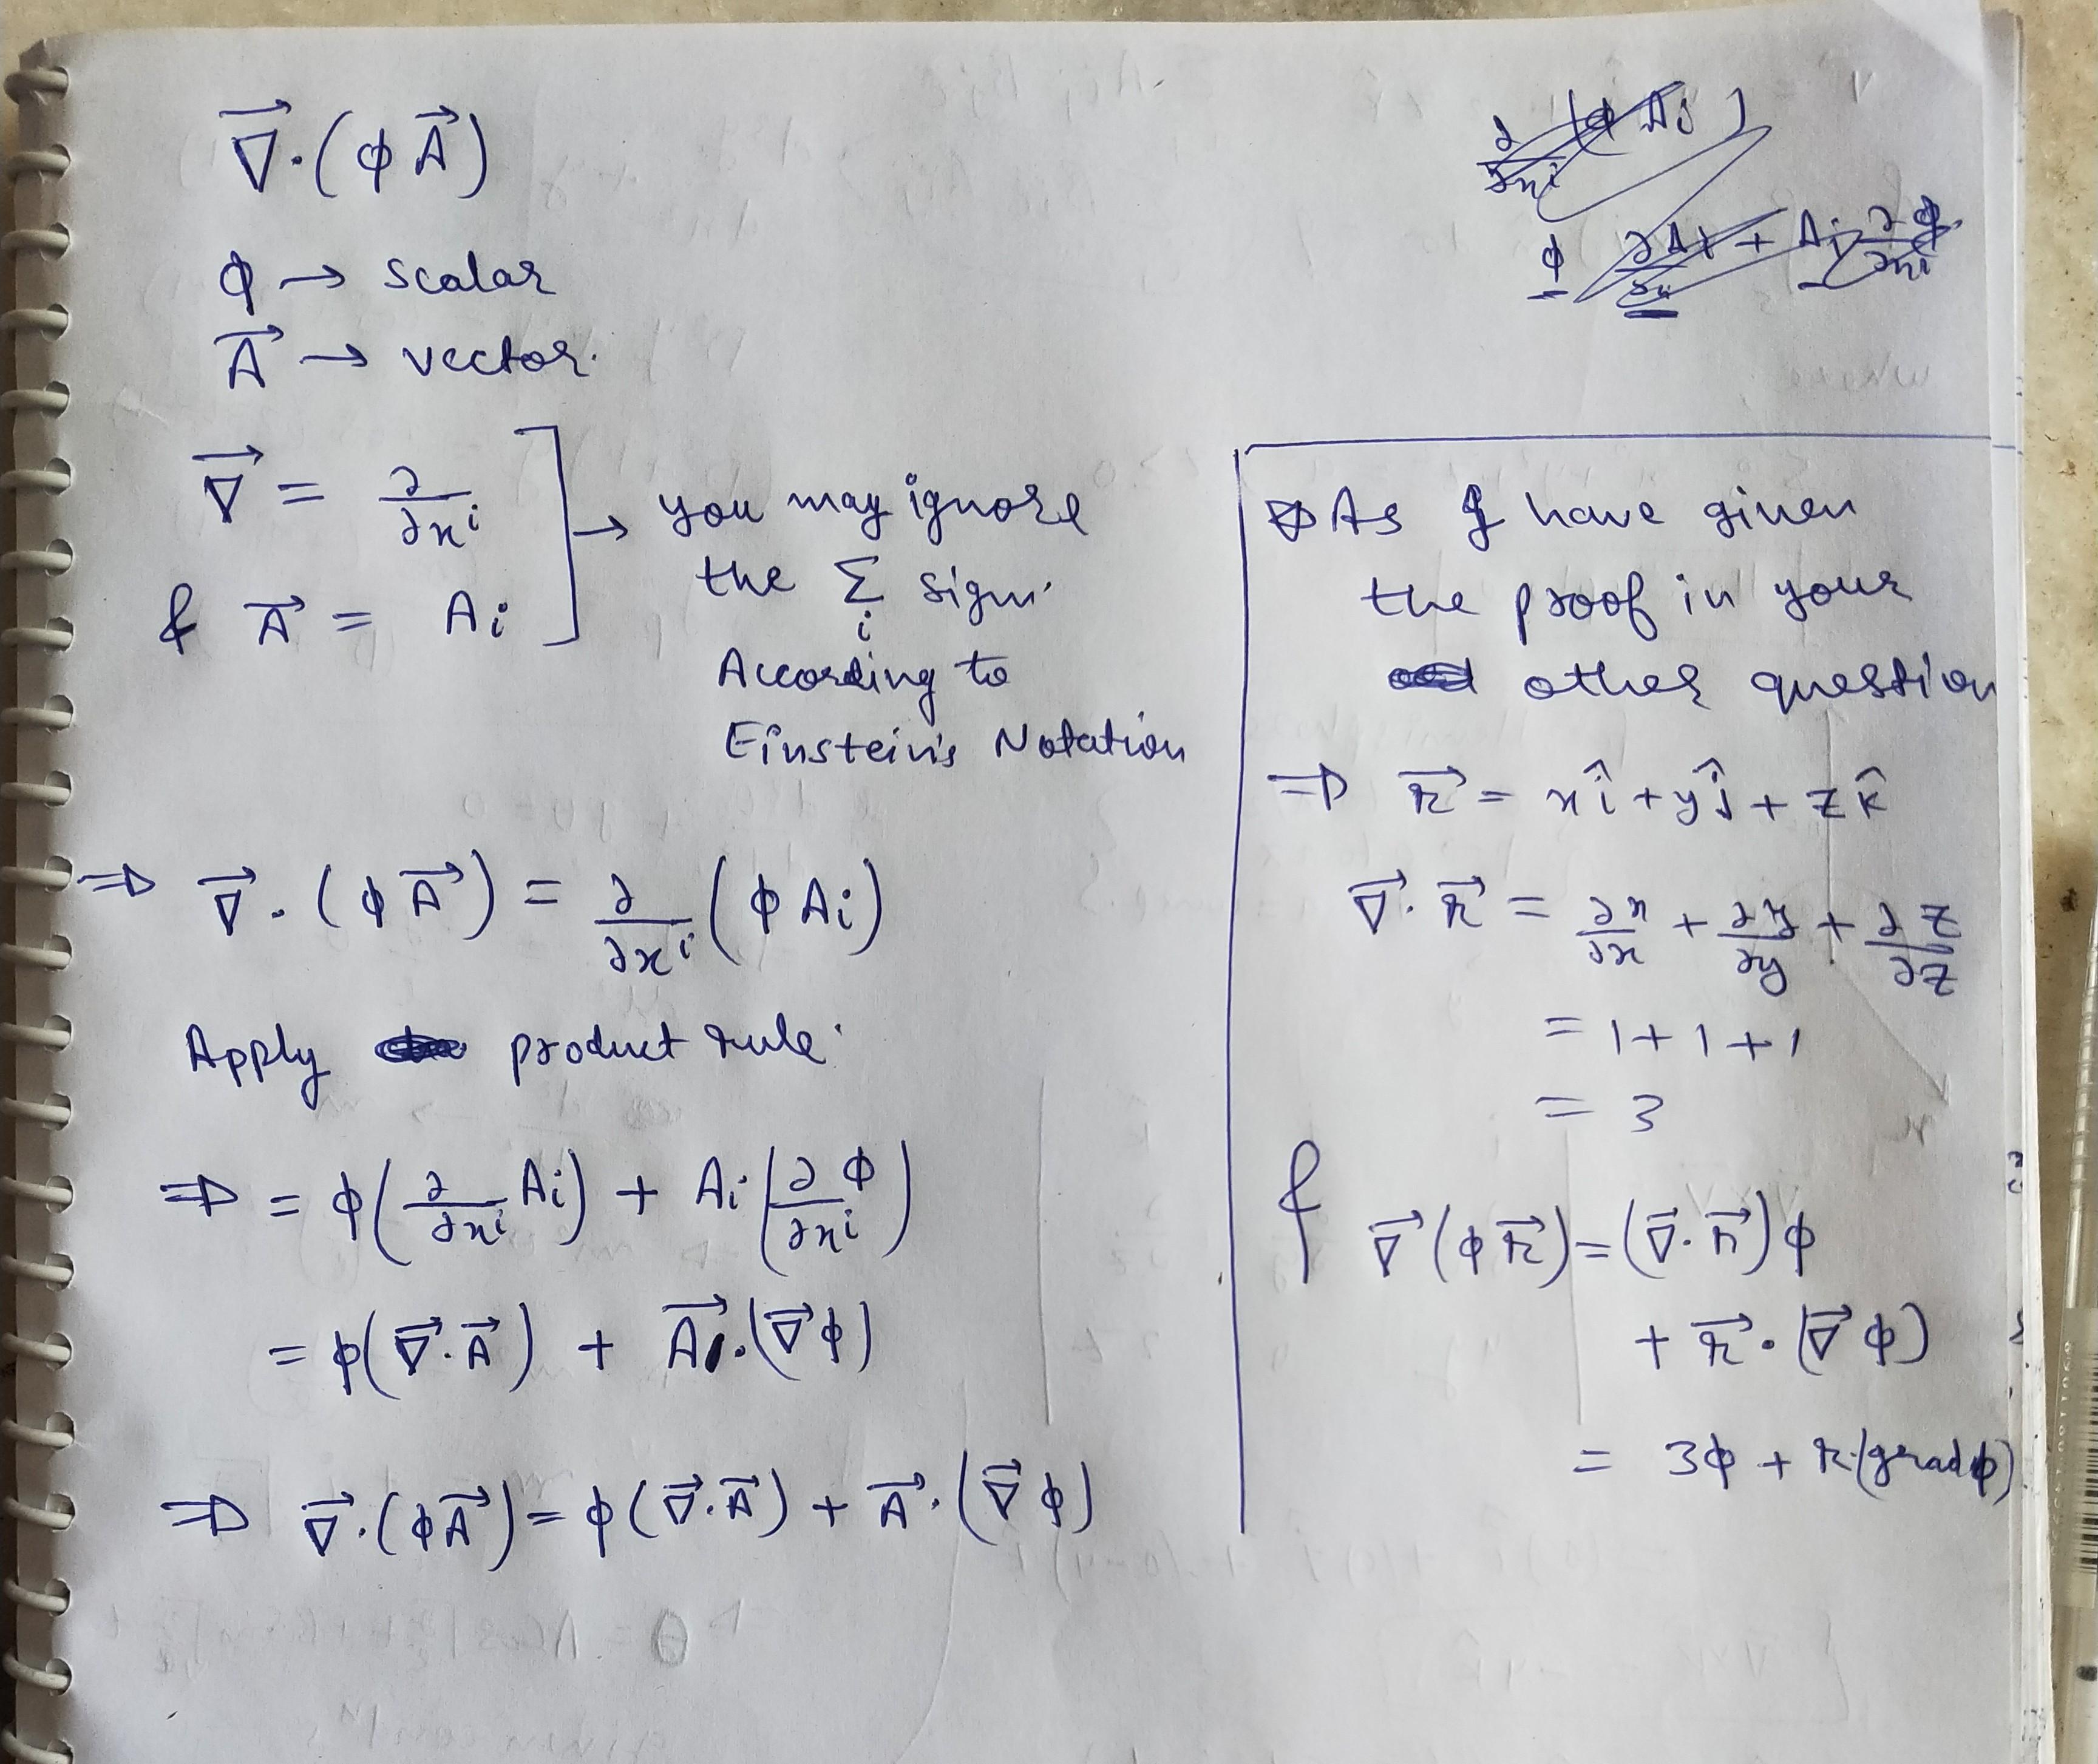 ∇⃗·(ϕA⃗)
ϕ → scalar
A⃗ → vector.
∇⃗ = ∂/∂xⁱ
& A⃗ = Aᵢ
→ you may ignore
the Σᵢ sign.
According to
Einstein's Notation
⇒ ∇⃗·(ϕA⃗) = ∂/∂xⁱ (ϕAᵢ)
Apply product rule.
⇒ = ϕ(∂/∂xⁱ Aᵢ) + Aᵢ(∂ϕ/∂xⁱ)
= ϕ(∇⃗·A⃗) + A⃗·(∇⃗ϕ)
⇒ ∇⃗·(ϕA⃗) = ϕ(∇⃗·A⃗) + A⃗·(∇⃗ϕ)
As I have given
the proof in your
other question
⇒ r⃗ = xî + yĵ + zk̂
∇⃗·r⃗ = ∂x/∂x + ∂y/∂y + ∂z/∂z
= 1+1+1
= 3
& ∇⃗(ϕr⃗) = (∇⃗·r⃗)ϕ
+ r⃗·(∇⃗ϕ)
= 3ϕ + r.(gradϕ)